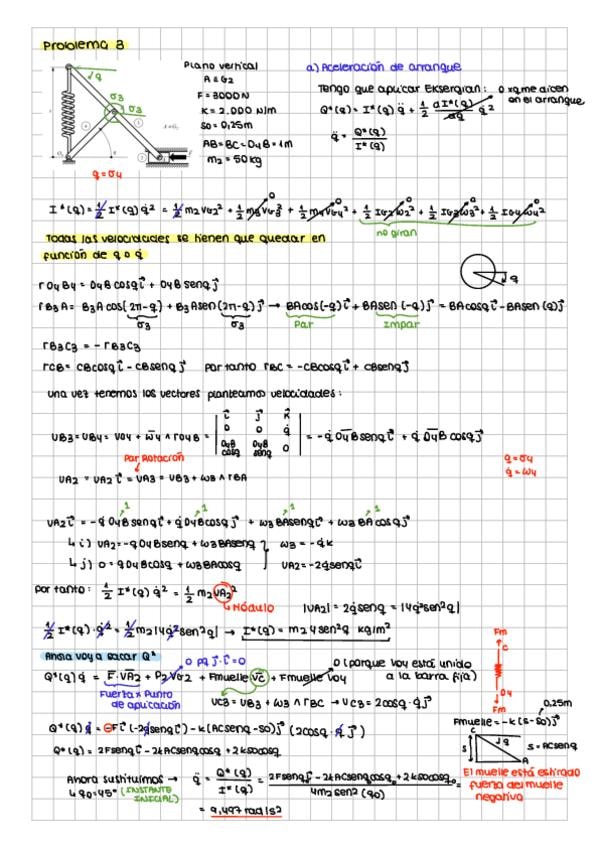 Problema 3
Plano vertical
A ≡ G2
F = 3000N
K = 2.000 N/m
so = 0,25m
AB = BC = O4B = 1m
m2 = 50kg
q = σ4
a) Aceleración de arranque
Tengo que aplicar Eksergian: 0 xq me dicen
en el arranque
Q*(q) = I*(q) q̈ + 1/2 dI*(q)/dq q̇²
q̈ = Q*(q)/I*(q)
I*(q) = 1/2 I*(q) q̇² = 1/2 m2 VG2² + 1/2 m3 VG3² + 1/2 m4 VG4² + 1/2 IG2 ω2² + 1/2 IG3 ω3² + 1/2 IG4 ω4²
no giran
Todas las velocidades se tienen que quedar en
función de q o q̇
rO4B4 = O4B cosq i + O4B senq j
rB3A = B3A cos(2π-q) + B3A sen(2π-q) j → BA cos(-q) i + BA sen(-q) j = BA cosq i - BA sen(q) j
σ3 σ3 Par Impar
rB3C3 = - rB3C3
rCB = CB cosq i - CB senq j por tanto rBC = -CB cosq i + CB senq j
una vez tenemos los vectores planteamos velocidades:
VB3 = VB4 = VO4 + ω4 ∧ rO4B = | i j k | 0 0 q̇ | O4B cosq O4B senq 0 | = -q̇ O4B senq i + q̇ O4B cosq j
Par Rotación
q = σ4
q̇ = ω4
VA2 = VA2 i = VA3 = VB3 + ω3 ∧ rBA
VA2 i = -q̇ O4B senq i + q̇ O4B cosq j + ω3 BA senq i + ω3 BA cosq j
↳ i) VA2 = -q O4B senq + ω3 BA senq } ω3 = -q̇ k
↳ j) 0 = q O4B cosq + ω3 BA cosq } VA2 = -2q̇ senq i
Por tanto: 1/2 I*(q) q̇² = 1/2 m2 VA2²
↳ Módulo |VA2| = 2q̇ senq = |4q̇² sen²q|
1/2 I*(q)·q̇² = 1/2 m2 |4q̇² sen²q| → I*(q) = m2 4 sen²q kg/m²
Ahora voy a sacar Q*
0 pq j·i = 0
0 (porque VO4 está unido
a la barra fija)
Q*(q) q̇ = F·VA2 + P2 VG2 + Fmuelle VC + Fmuelle VO4
Fuerza x Punto
de aplicación
VC3 = VB3 + ω3 ∧ rBC → VC3 = 2cosq·q̇ j
Q*(q) q̇ = -F i (-2q̇ senq i) - k (AC senq - so) j (2cosq·q̇ j)
Q*(q) = 2F senq - 2k AC senq cosq + 2k so cosq
Ahora sustituimos → q̈ = Q*(q)/I*(q) = 2F senq - 2k AC senq cosq + 2k so cosq / 4m2 sen²(qo) =
↳ qo = 45° (INSTANTE
INICIAL)
= 9,497 rad/s²
Fm
C
O4
Fm
0,25m
Fmuelle = -k (s-so) j
C
q
S
A
S = AC senq
El muelle está estirado
fuerza del muelle
negativa